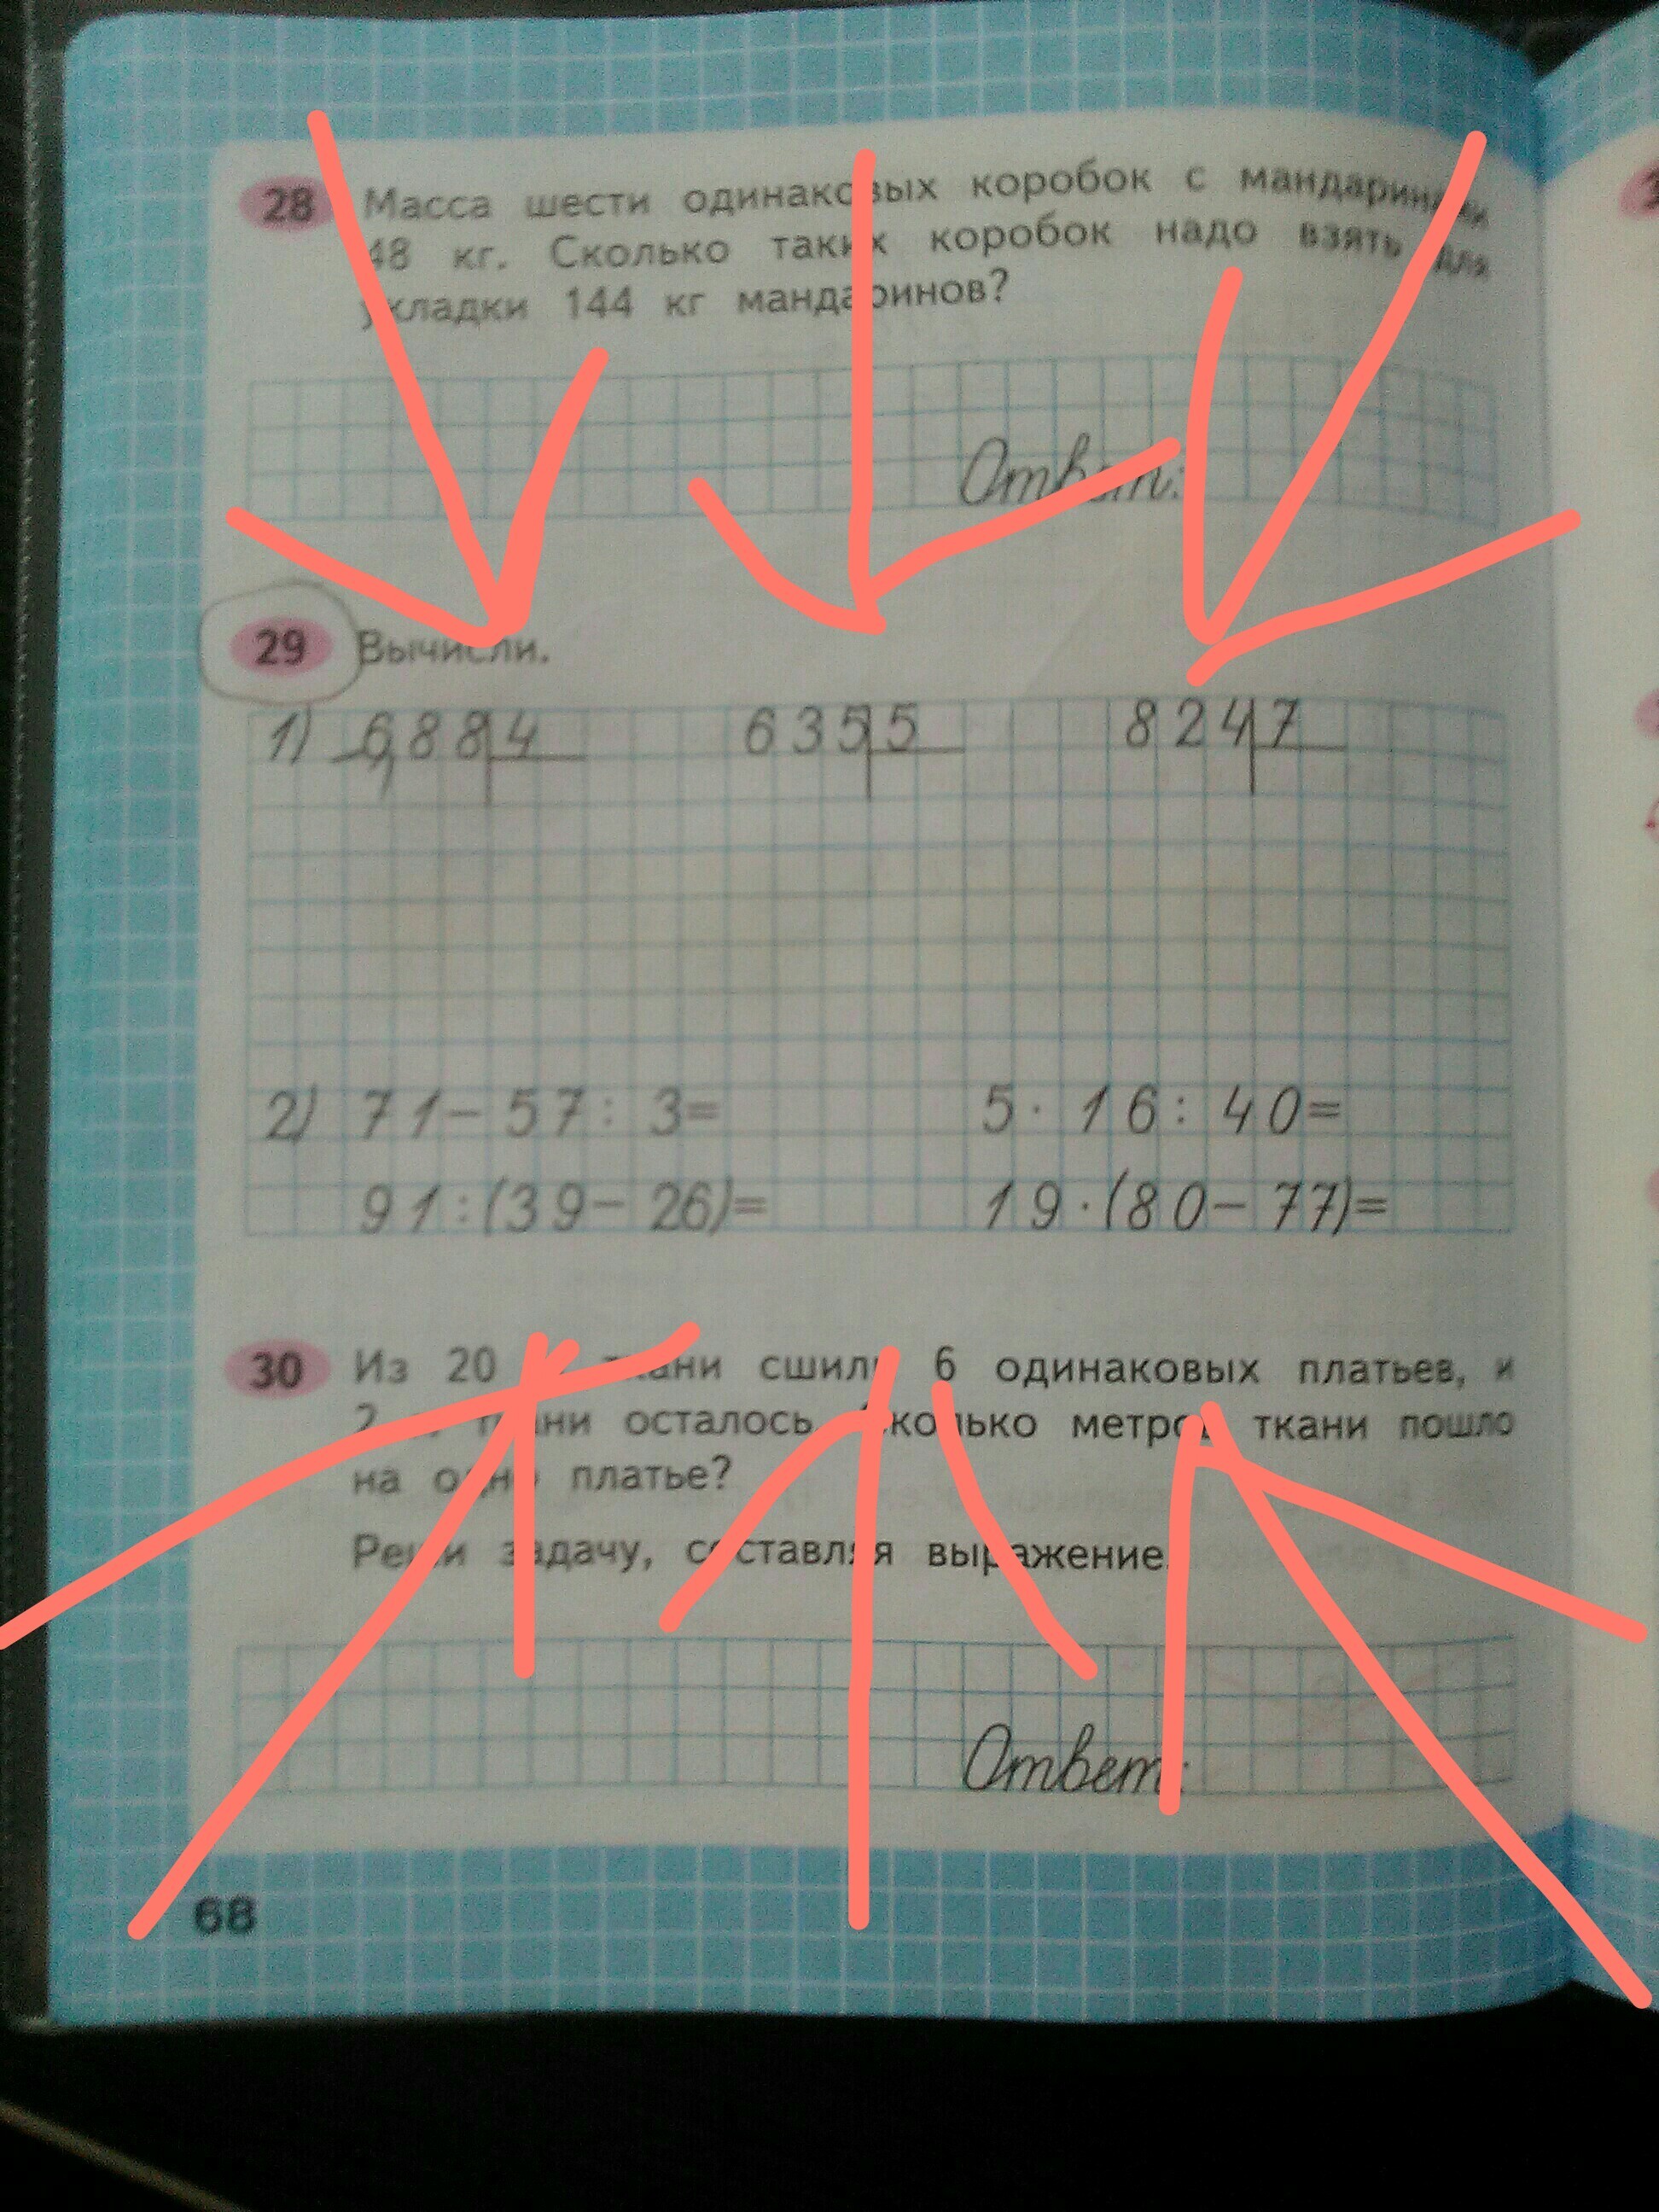 28 Масса шести одинаковых коробок с мандаринами
48 кг. Сколько таких коробок надо взять для
укладки 144 кг мандаринов?
Ответ:
29 Вычисли.
1) 688|4 635|5 824|7
2) 71-57:3= 5·16:40=
91:(39-26)= 19·(80-77)=
30 Из 20 ткани сшили 6 одинаковых платьев, и
2 м ткани осталось. Сколько метров ткани пошло
на одно платье?
Реши задачу, составляя выражение.
Ответ:
68